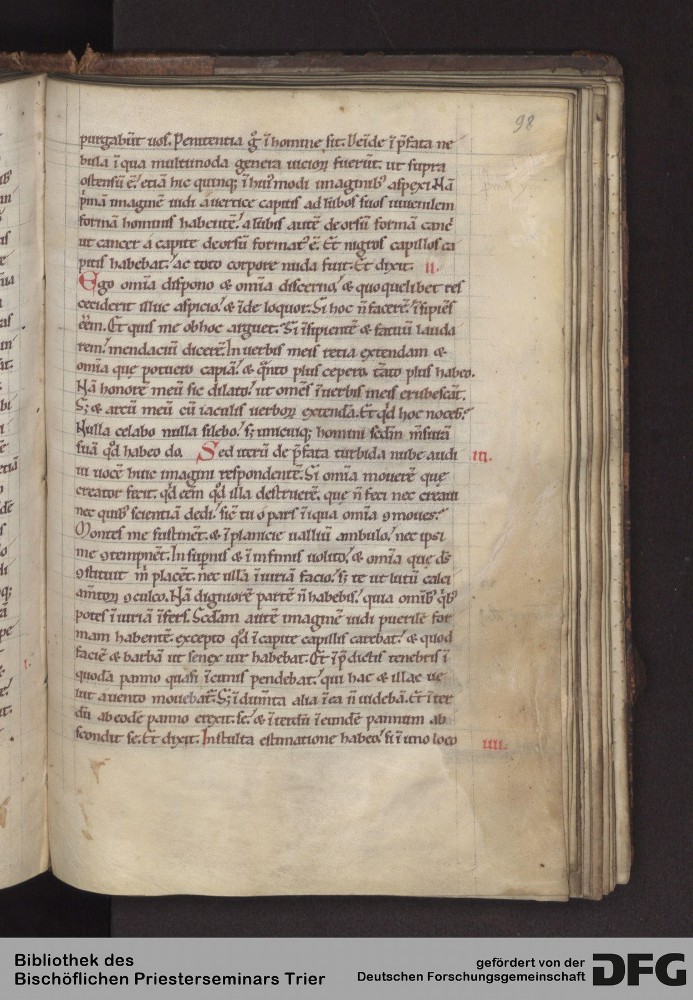 98
purgabūt uos. Penitentia g̊ ī homine sit. Deīde ī p̄fata ne
bula ī qua multimoda genera uicioꝝ fuerūt. ut supra
ostensū ē. etiā hic quinq; ī hui᷒modi imaginib᷒ aspexi. Nā
p̄mā imaginē uidi a uertice capitis ad lūbos suos iuuenilem
formā hominis habentē. a lūbis autē deorsū formā cancī
ut cancer a capite deorsū format᷒ ē. Et nigros capillos ca
pitis habebat. ac toto corpore nuda fuit. Et dixit. II.
Ego omīa dispono & omīa discerno. & quoquelibet res
ceciderit illuc aspicio. & īde loquor. Si hoc n̄ facerē. īsipiēs
eēm. Et quis me ob hoc arguet. Si īsipientē & fatuū lauda
rem. mendaciū dicerē. In uerbis meis retia extendam &
omīa que potuero capiā. & q̄nto plus cepero. tāto plus habeo.
Nā honorē meū sic dilato. ut om̄s ī uerbis meis erubescāt.
S; & arcū meū cū iaculis uerboꝝ extendā. Et qd̓ hoc nocebit?
Nulla celabo nulla silebo. s; unicuiq; homini scdm̄ m̄surā
suā qd̓ habeo do. Sed iterū de p̄fata turbida nube audi III.
ui uocē huic imagini respondentē. Si omīa mouerē que
creator fecit. qd̓ eēm qd̓ illa destruerē. que n̄ feci nec creaui
nec quib᷒ scientiā dedi. sic tu o pars ī iqua omīa ꝯmoues.
Montes me sustinēt. & ī planicie ualliū ambulo. nec ipsi
me ꝯtempnēt. In sup̄nis & in infimis uolito. & omīa que ds̄
ꝯstituit m̄ placēt. nec ulla ī iuriā facio. s; te ut lutū calci
am̄toꝝ ꝯculco. Nā dignorē partē n̄ habebis. quia omib᷒ qb᷒
potes ī iuriā īfers. Scdam autē imaginē uidi puerilē for
mam habentē. excepto qd̓ ī capite capillis carebat. & quod
faciē & barbā ut senex uir habebat. Et ī p̄dictis tenebris ī
quodā panno quasi ī cunis pendebat. qui hac & illac ue
lut a uento mouebat᷒. S; ī dum̄ta alia ī ea n̄ uidebā. Et īter
dū ab eodē panno erexit se. & īterdū ī eundē pannum ab
scondit se. Et dixit. In stulta estimatione habeo. si ī uno loco IIII.
Bibliothek des
Bischöflichen Priesterseminars Trier
gefördert von der
Deutschen Forschungsgemeinschaft
DFG